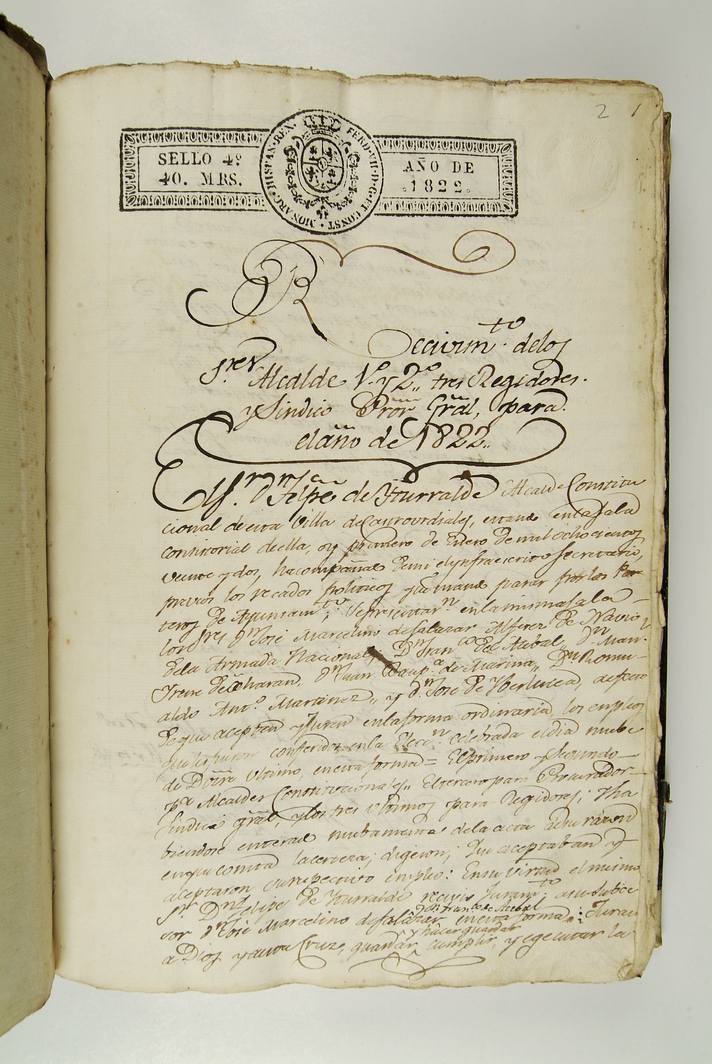 2 1
SELLO 4º
40. MRS.
HISPAN. REX. FERD. VII. D. G. ET CONST. MONARC.
AÑO DE
1822.
Recivimto. de los
Sres. Alcalde 1º. y 2º. tres Regidores.
y Síndico Prõr Grãl, para.
el año de 1822.
El Sr. Dn. Felipe de Yturralde Alcalde Constitu
cional de esta Villa de Castrourdiales, estando en la sala
consistorial de ella, oy primero de Enero de mil ochocientos
veinte y dos, hacompañado de mi el ynfraescrito secretario,
previos los recados politicos que mando pasar por los Por
teros de Ayuntamto., se presentarn. en la misma sala
los Sres. Dn. José Marcelino de Salazar Alferez de Navio
de la Armada Nacional, Dn. Franco. del Acebal, Dn. Man.
de Oharan, Dn. Juan Baupta. de Marina, Dn. Romu
aldo Anto. Martinez, y Dn. José de Yberlucea, a efecto
de que aceptan y Juren en la forma ordinaria los empleos
que les fueron conferidos en la Elecn. celebrada el dia nuebe
de Dizre. ultimo, en esta forma = El primero y Segundo
para Alcaldes Constitucionales, El tercero para Procurador
Sindico grãl, y los tres ultimos para Regidores; Y ha
biendose enterado nuebamente de la acta de su razon
en que consta la certeza, digeron; Que aceptaban y
aceptaron su respectivo empleo: En su virtud el mismo
Sr. Dn. Felipe de Yturralde recivió Juramto. a su subce
sor Dn. José Marcelino de Salazar, en esta forma: Jurais
Dn. Franco. de Acebal
y hacer guardar
a Dios y a esta Cruz, guardar cumplir, y egecutar la